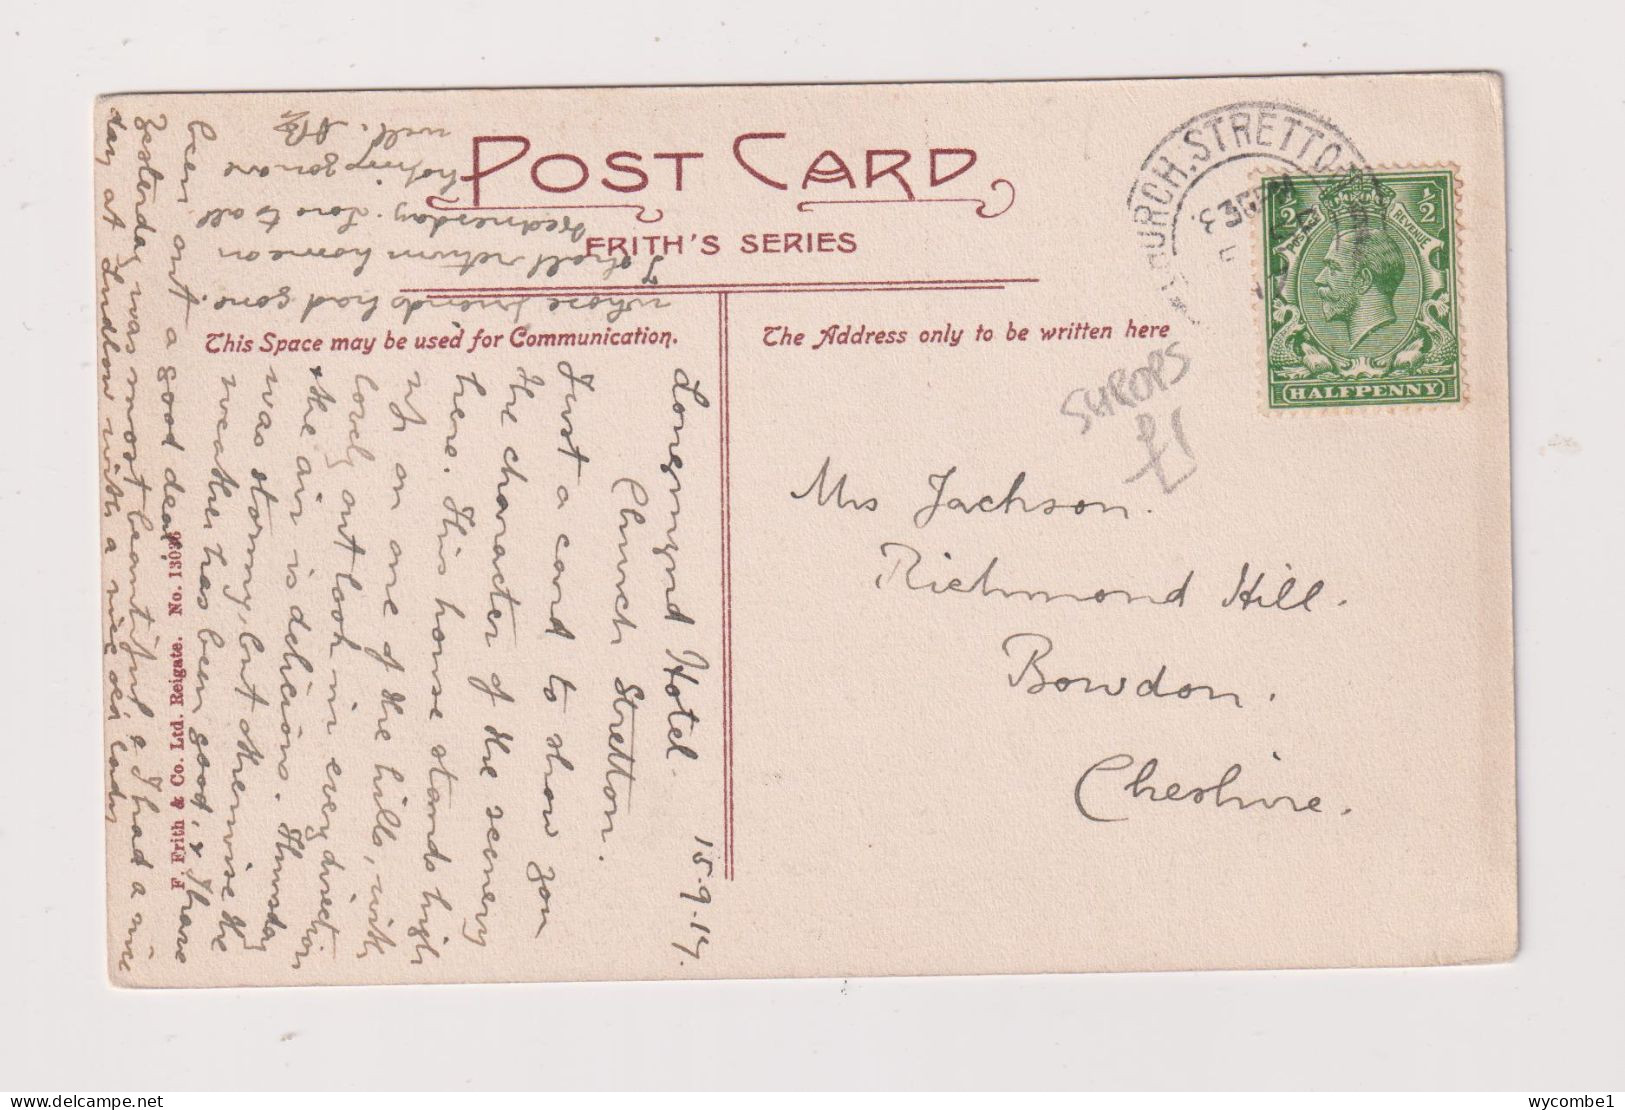 POST CARD
FRITH'S SERIES
This Space may be used for Communication.
The Address only to be written here
CHURCH.STRETTON
½ ½
POSTAGE REVENUE
HALFPENNY
SHROPS
£1
Mrs Jackson.
Richmond Hill.
Bowdon.
Cheshire.
Longmynd Hotel. 15.9.14.
Church Stretton.
Just a card to show you
the character of the scenery
here. This house stands high
up on one of the hills, with
lovely outlook in every direction
& the air is delicious. Thursday
was stormy, but otherwise the
weather has been good, & I have
been out a good deal.
Yesterday was most beautiful & I had a nice
day at Ludlow with a nice old lady
whose friends had gone.
I shall return home on
Wednesday. Love to all
hoping you are
well.
F. Frith & Co. Ltd. Reigate. No. 13036
wycombe1